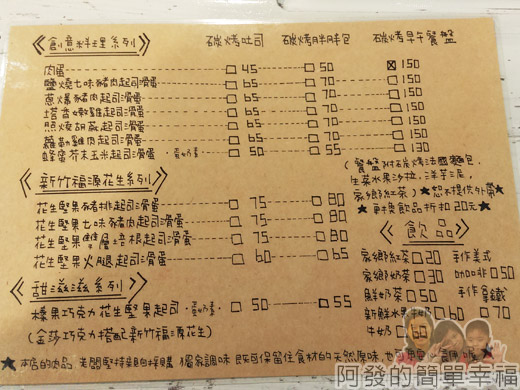 《創意料理系列》 碳烤吐司 碳烤胖胖包 碳烤早午餐盤
肉蛋 □ 45 □ 50 ☒ 150
鹽燒七味豬肉起司滑蛋 □ 65 □ 70 □ 150
蔥爆豬肉起司滑蛋 □ 65 □ 70 □ 150
塔香嫩雞起司滑蛋 □ 65 □ 70 □ 150
照燒胡麻起司滑蛋 □ 65 □ 70 □ 150
蘿勒雞肉起司滑蛋 □ 65 □ 70 □ 150
蜂蜜芥末玉米起司滑蛋 · 蛋奶素 □ 50 □ 55 □ 130
(餐盤附碳烤法國麵包,
生菜水果沙拉,洋芋泥,
家鄉紅茶) ★恕不提供外帶
★更換飲品折扣20元★
《新竹福源花生系列》
花生堅果豬排起司滑蛋 □ 75 □ 80
花生堅果七味豬肉起司滑蛋 □ 75 □ 80
花生堅果雙層培根起司滑蛋 □ 75 □ 80
花生堅果火腿起司滑蛋 □ 60 □ 65
《甜滋滋系列》
榛果巧克力花生堅果起司 · 蛋奶素 □ 50 □ 55
(金莎巧克力搭配新竹福源花生)
《飲品》
家鄉紅茶 □ 20 手作美式
家鄉奶茶 □ 30 咖啡 □ 50
鮮奶茶 □ 50 手作拿鐵
新鮮水果奶昔 □ 60 □ 70
牛奶 □ 60
★本店的肉品 老闆堅持親自採購 獨家調味 既可保留住食材的天然原味,也可
阿發的簡單幸福